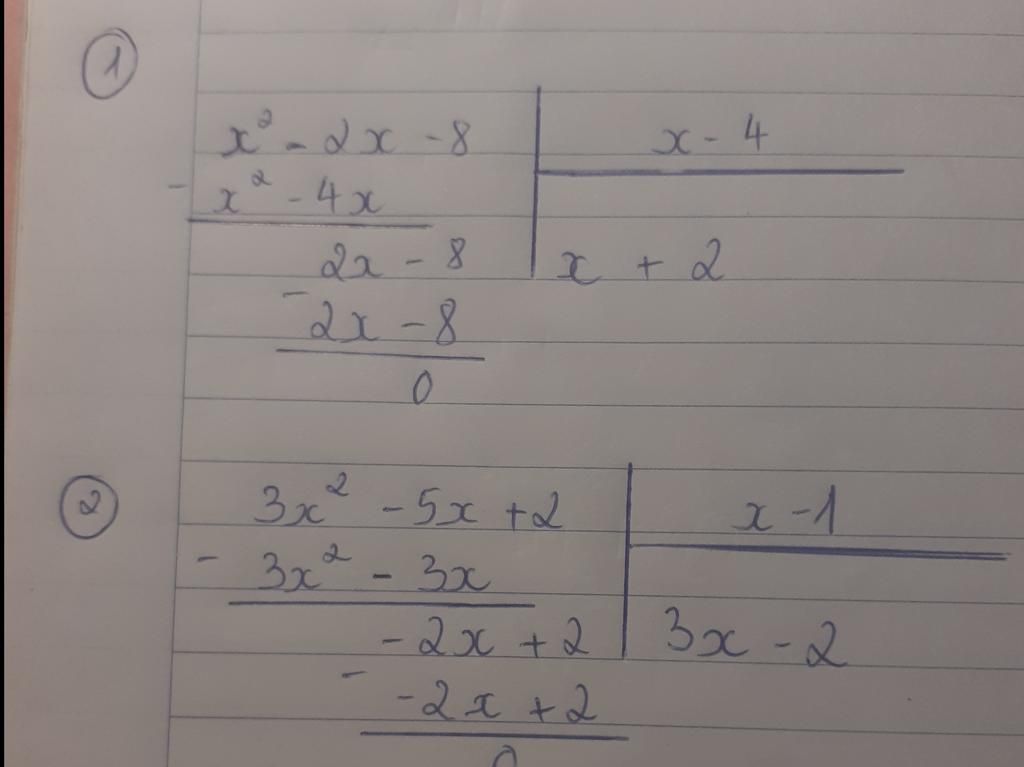 ①
x² - 2x - 8 | x - 4
- x² - 4x
2x - 8 | x + 2
- 2x - 8
0
②
3x² - 5x + 2 | x - 1
- 3x² - 3x
- 2x + 2 | 3x - 2
- - 2x + 2
0